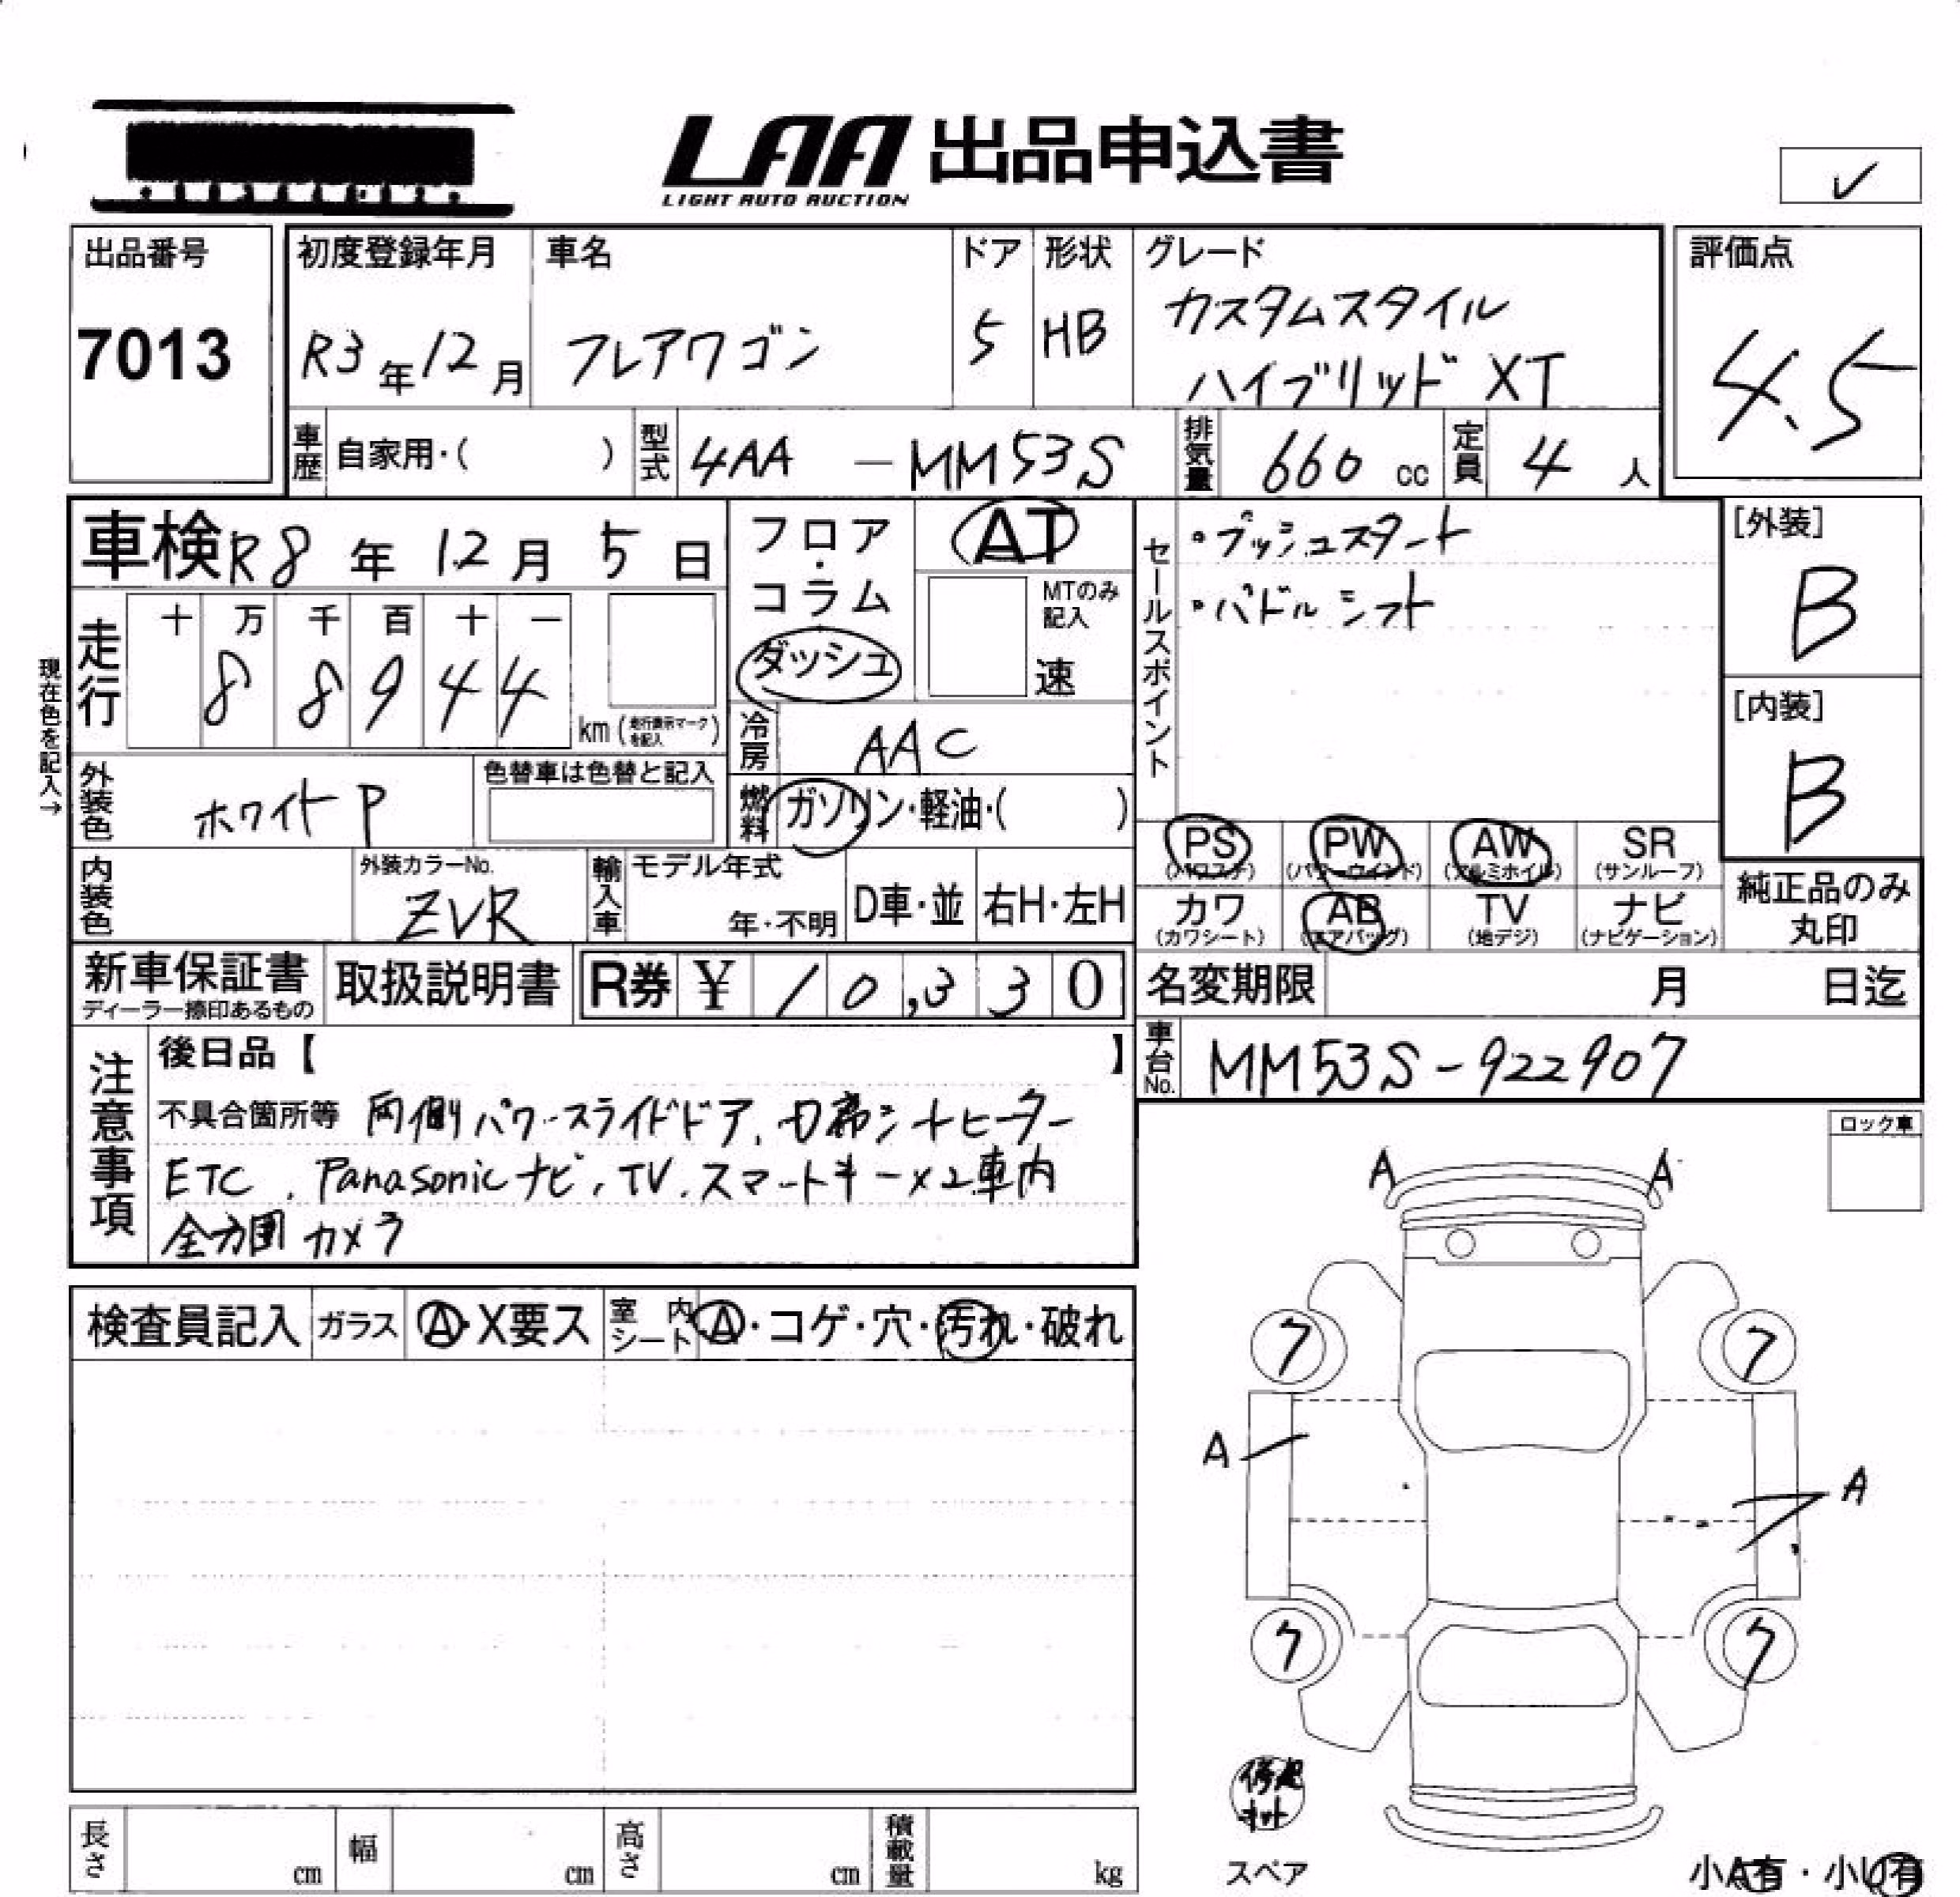 LAA 出品申込書
LIGHT AUTO AUCTION
✓
出品番号
7013
初度登録年月
R3年12月
車名
フレアワゴン
ドア
5
形状
HB
グレード
カスタムスタイル
ハイブリッド XT
評価点
4.5
車歴 自家用・( )
型式 4AA - MM53S
排気量 660 cc
定員 4 人
車検 R8年 12月 5日
フロア・コラム
ダッシュ
AT
MTのみ記入
速
セールスポイント
・プッシュスタート
・パドルシフト
[外装]
B
[内装]
B
現在色を記入→
走行
十 万 千 百 十 一
8 8 9 4 4
km (走行表示マークを記入)
冷房 AAC
外装色 ホワイトP
色替車は色替と記入
燃料 ガソリン・軽油・( )
PS (パワステ)
PW (パワーウインド)
AW (アルミホイル)
SR (サンルーフ)
カワ (カワシート)
AB (エアバッグ)
TV (地デジ)
ナビ (ナビゲーション)
純正品のみ丸印
内装色
外装カラーNo.
ZVR
輸入車
モデル年式
年・不明
D車・並
右H・左H
新車保証書
ディーラー捺印あるもの
取扱説明書
R券 ¥ 10,330
名変期限 月 日迄
車台No. MM53S-922907
注意事項
後日品【 】
不具合箇所等 両側パワースライドドア、D席シートヒーター
ETC、Panasonicナビ、TV、スマートキー×2車内
全方囲カメラ
ロック車
A A
検査員記入
ガラス A・X要ス
室内シート A・コゲ・穴・汚れ・破れ
7 7
A
A
7 7
スペア
小A有・小U有
長さ cm
幅 cm
高さ cm
積載量 kg